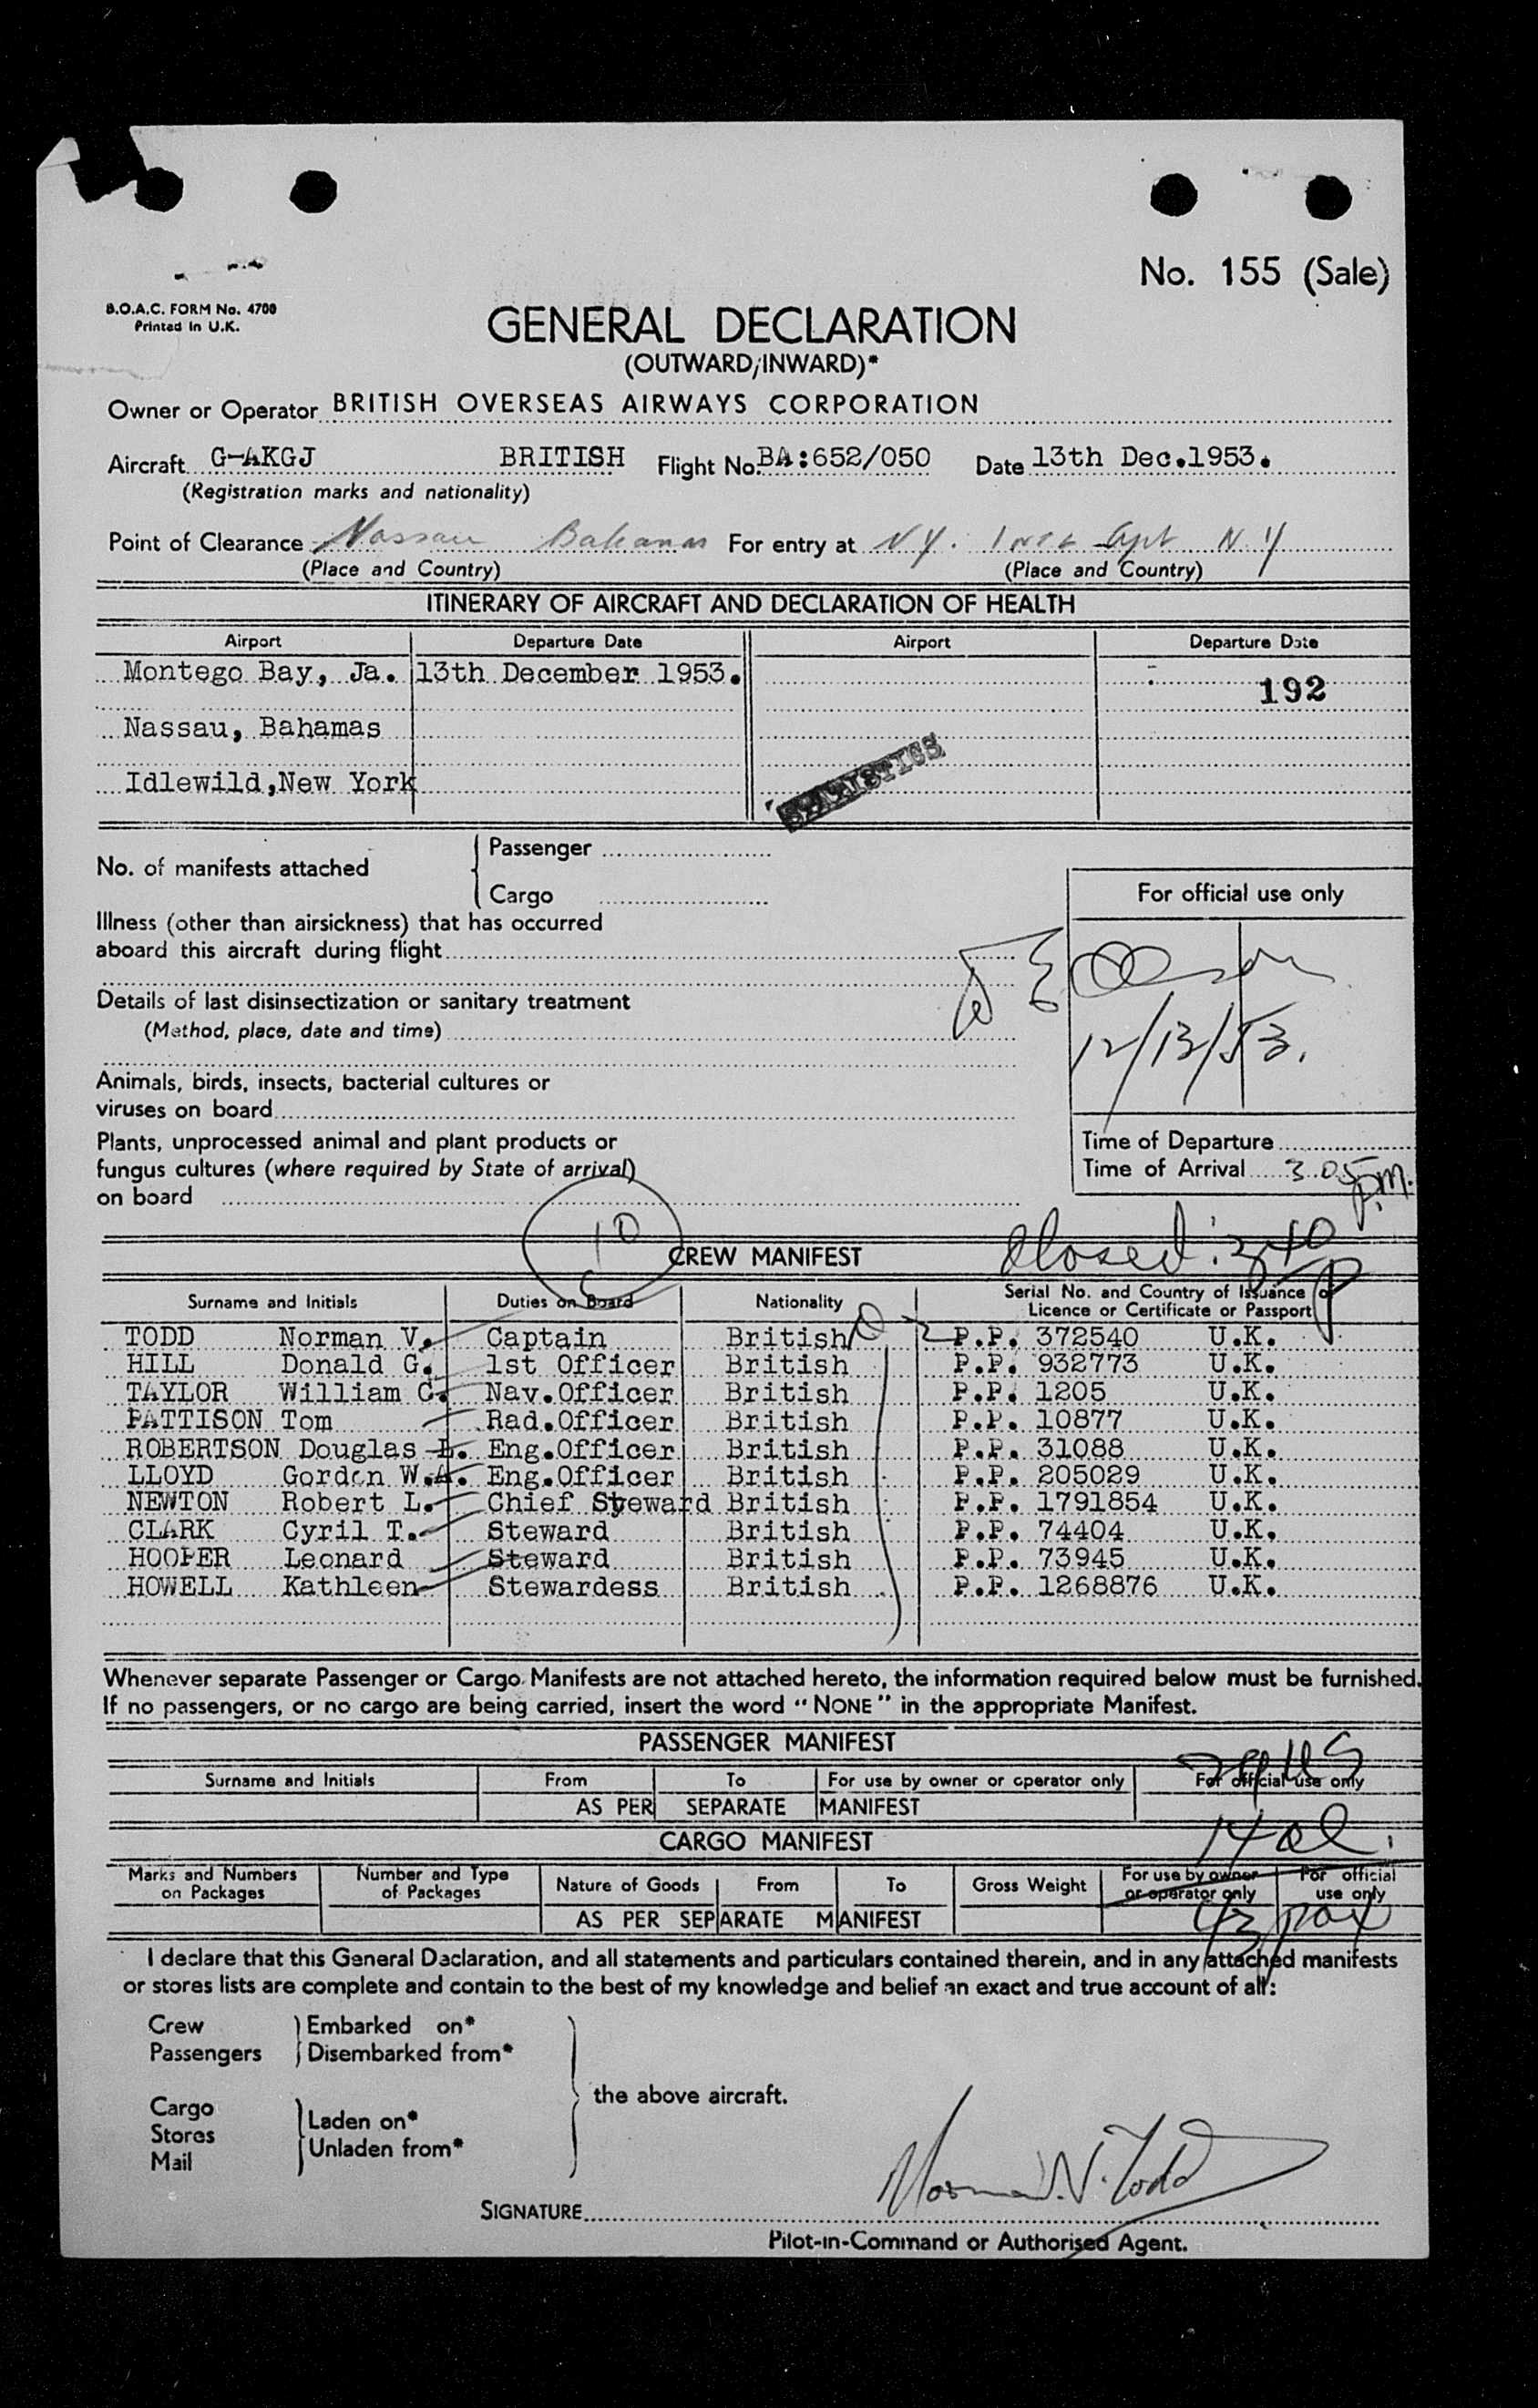 No. 155 (Sale)
B.O.A.C. FORM No. 4700
Printed in U.K.
GENERAL DECLARATION
(OUTWARD/INWARD)*
Owner or Operator BRITISH OVERSEAS AIRWAYS CORPORATION
Aircraft G-AKGJ BRITISH Flight No. BA:652/050 Date 13th Dec.1953.
(Registration marks and nationality)
Point of Clearance Nassau Bahamas For entry at N.Y. Apt N.Y
(Place and Country) (Place and Country)
ITINERARY OF AIRCRAFT AND DECLARATION OF HEALTH
Airport Departure Date Airport Departure Date
Montego Bay, Ja. 13th December 1953.
192
Nassau, Bahamas
STATISTICS
Idlewild,New York
No. of manifests attached { Passenger
Cargo
For official use only
Illness (other than airsickness) that has occurred
aboard this aircraft during flight
Details of last disinsectization or sanitary treatment
(Method, place, date and time)
12/13/53.
Animals, birds, insects, bacterial cultures or
viruses on board
Plants, unprocessed animal and plant products or
fungus cultures (where required by State of arrival)
on board
Time of Departure
Time of Arrival 3.05 P.M.
10
Closed : 340 P
CREW MANIFEST
Surname and Initials Duties on Board Nationality Serial No. and Country of Issuance of
Licence or Certificate or Passport
TODD Norman V. Captain British P.P. 372540 U.K.
HILL Donald G. 1st Officer British P.P. 932773 U.K.
TAYLOR William C. Nav.Officer British P.P. 1205 U.K.
PATTISON Tom Rad.Officer British P.P. 10877 U.K.
ROBERTSON Douglas L. Eng.Officer British P.P. 31088 U.K.
LLOYD Gordon W.A. Eng.Officer British P.P. 205029 U.K.
NEWTON Robert L. Chief Steward British P.P. 1791854 U.K.
CLARK Cyril T. Steward British P.P. 74404 U.K.
HOOPER Leonard Steward British P.P. 73945 U.K.
HOWELL Kathleen Stewardess British P.P. 1268876 U.K.
Whenever separate Passenger or Cargo Manifests are not attached hereto, the information required below must be furnished.
If no passengers, or no cargo are being carried, insert the word "NONE" in the appropriate Manifest.
PASSENGER MANIFEST
29 US
Surname and Initials From To For use by owner or operator only For official use only
AS PER SEPARATE MANIFEST
14 al.
CARGO MANIFEST
Marks and Numbers on Packages Number and Type of Packages Nature of Goods From To Gross Weight For use by owner or operator only For official use only
AS PER SEPARATE MANIFEST
43 pax
I declare that this General Declaration, and all statements and particulars contained therein, and in any attached manifests
or stores lists are complete and contain to the best of my knowledge and belief an exact and true account of all:
Crew } Embarked on*
Passengers } Disembarked from*
the above aircraft.
Cargo
Stores } Laden on*
Mail } Unladen from*
Norman V. Todd
SIGNATURE
Pilot-in-Command or Authorised Agent.